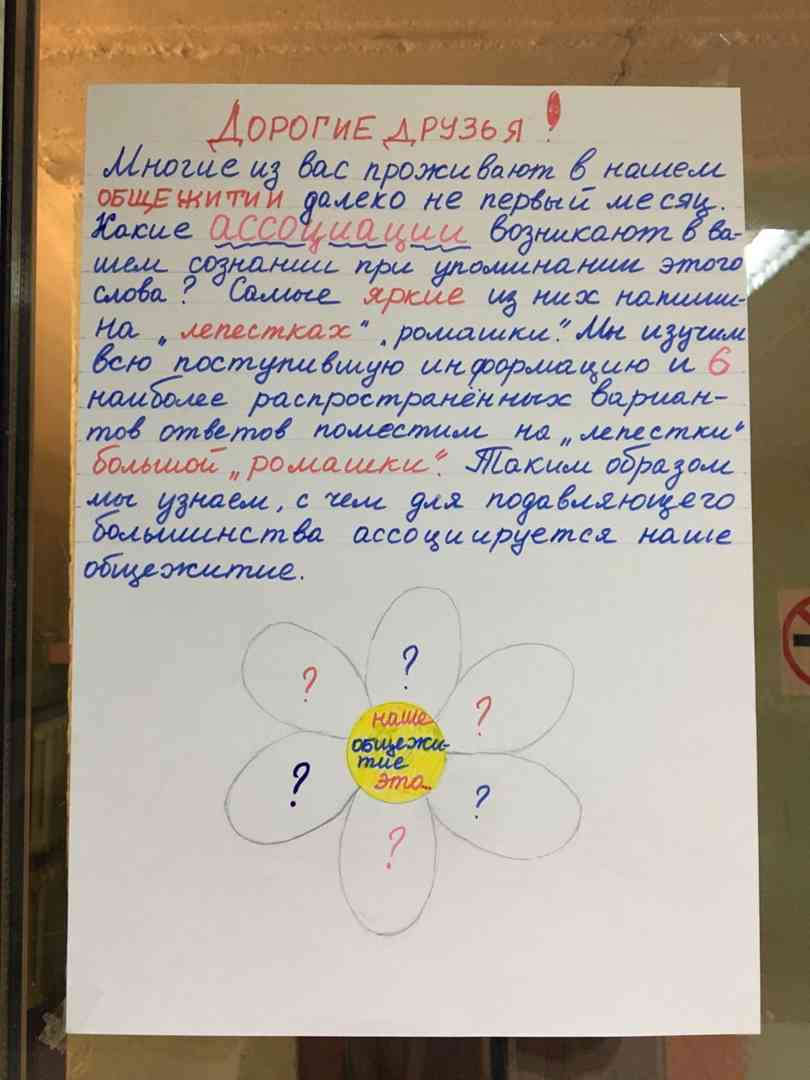 ДОРОГИЕ ДРУЗЬЯ!
Многие из вас проживают в нашем
ОБЩЕЖИТИИ далеко не первый месяц.
Какие АССОЦИАЦИИ возникают в ва-
шем сознании при упоминании этого
слова? Самые яркие из них напиши-
на „лепестках“ „ромашки“. Мы изучим
всю поступившую информацию и 6
наиболее распространённых вариан-
тов ответов поместим на „лепестки“
большой „ромашки“. Таким образом
мы узнаем, с чем для подавляющего
большинства ассоциируется наше
общежитие.
?
?
?
наше
общежи-
тие
это...
?
?
?